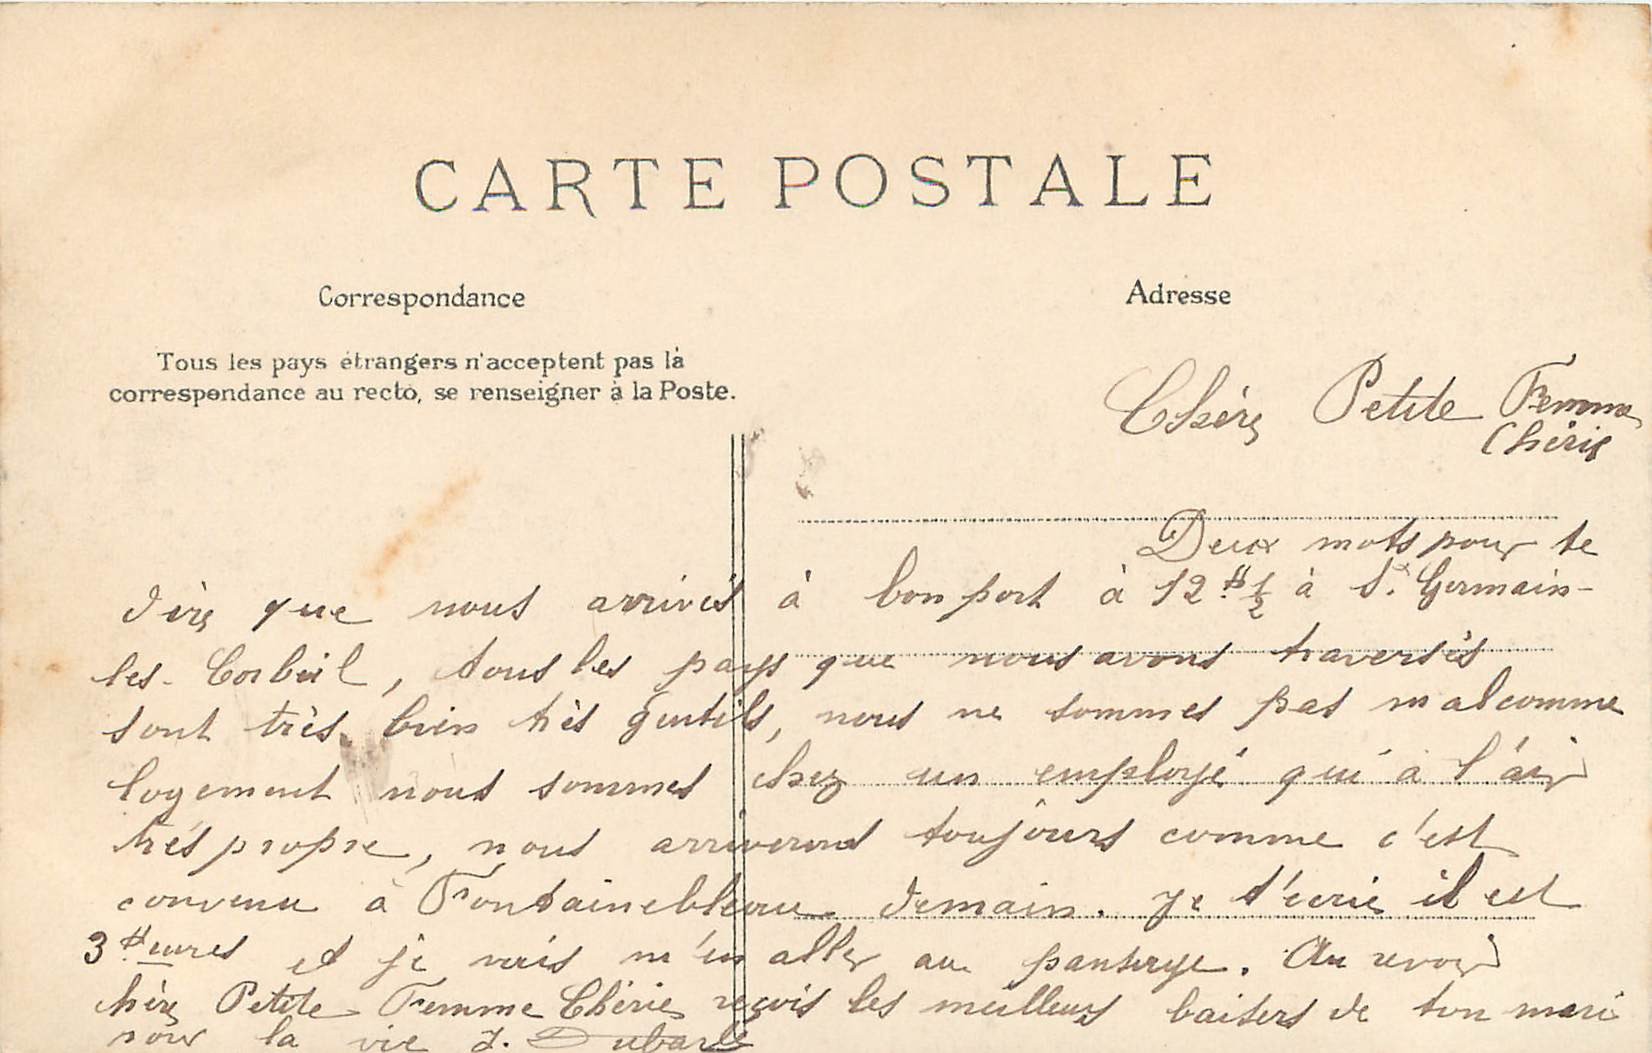 CARTE POSTALE
Correspondance
Adresse
Tous les pays étrangers n'acceptent pas la
correspondance au recto, se renseigner à la Poste.
Chère Petite Femme
Chérie
Deux mots pour te
dire que nous arrivés à bon port à 12 H ½ à St Germain-
les-Corbeil, tous les pays que nous avons traversés
sont très bien très gentils, nous ne sommes pas mal comme
logement nous sommes chez un employé qui a l'air
très propre, nous arriverons toujours comme c'est
convenu à Fontainebleau demain. Je t'écrie il est
3 Heures et je vais m'en aller au pansage. Au revoir
chère Petite Femme Chérie reçois les meilleurs baisers de ton mari
pour la vie J. Dubarle